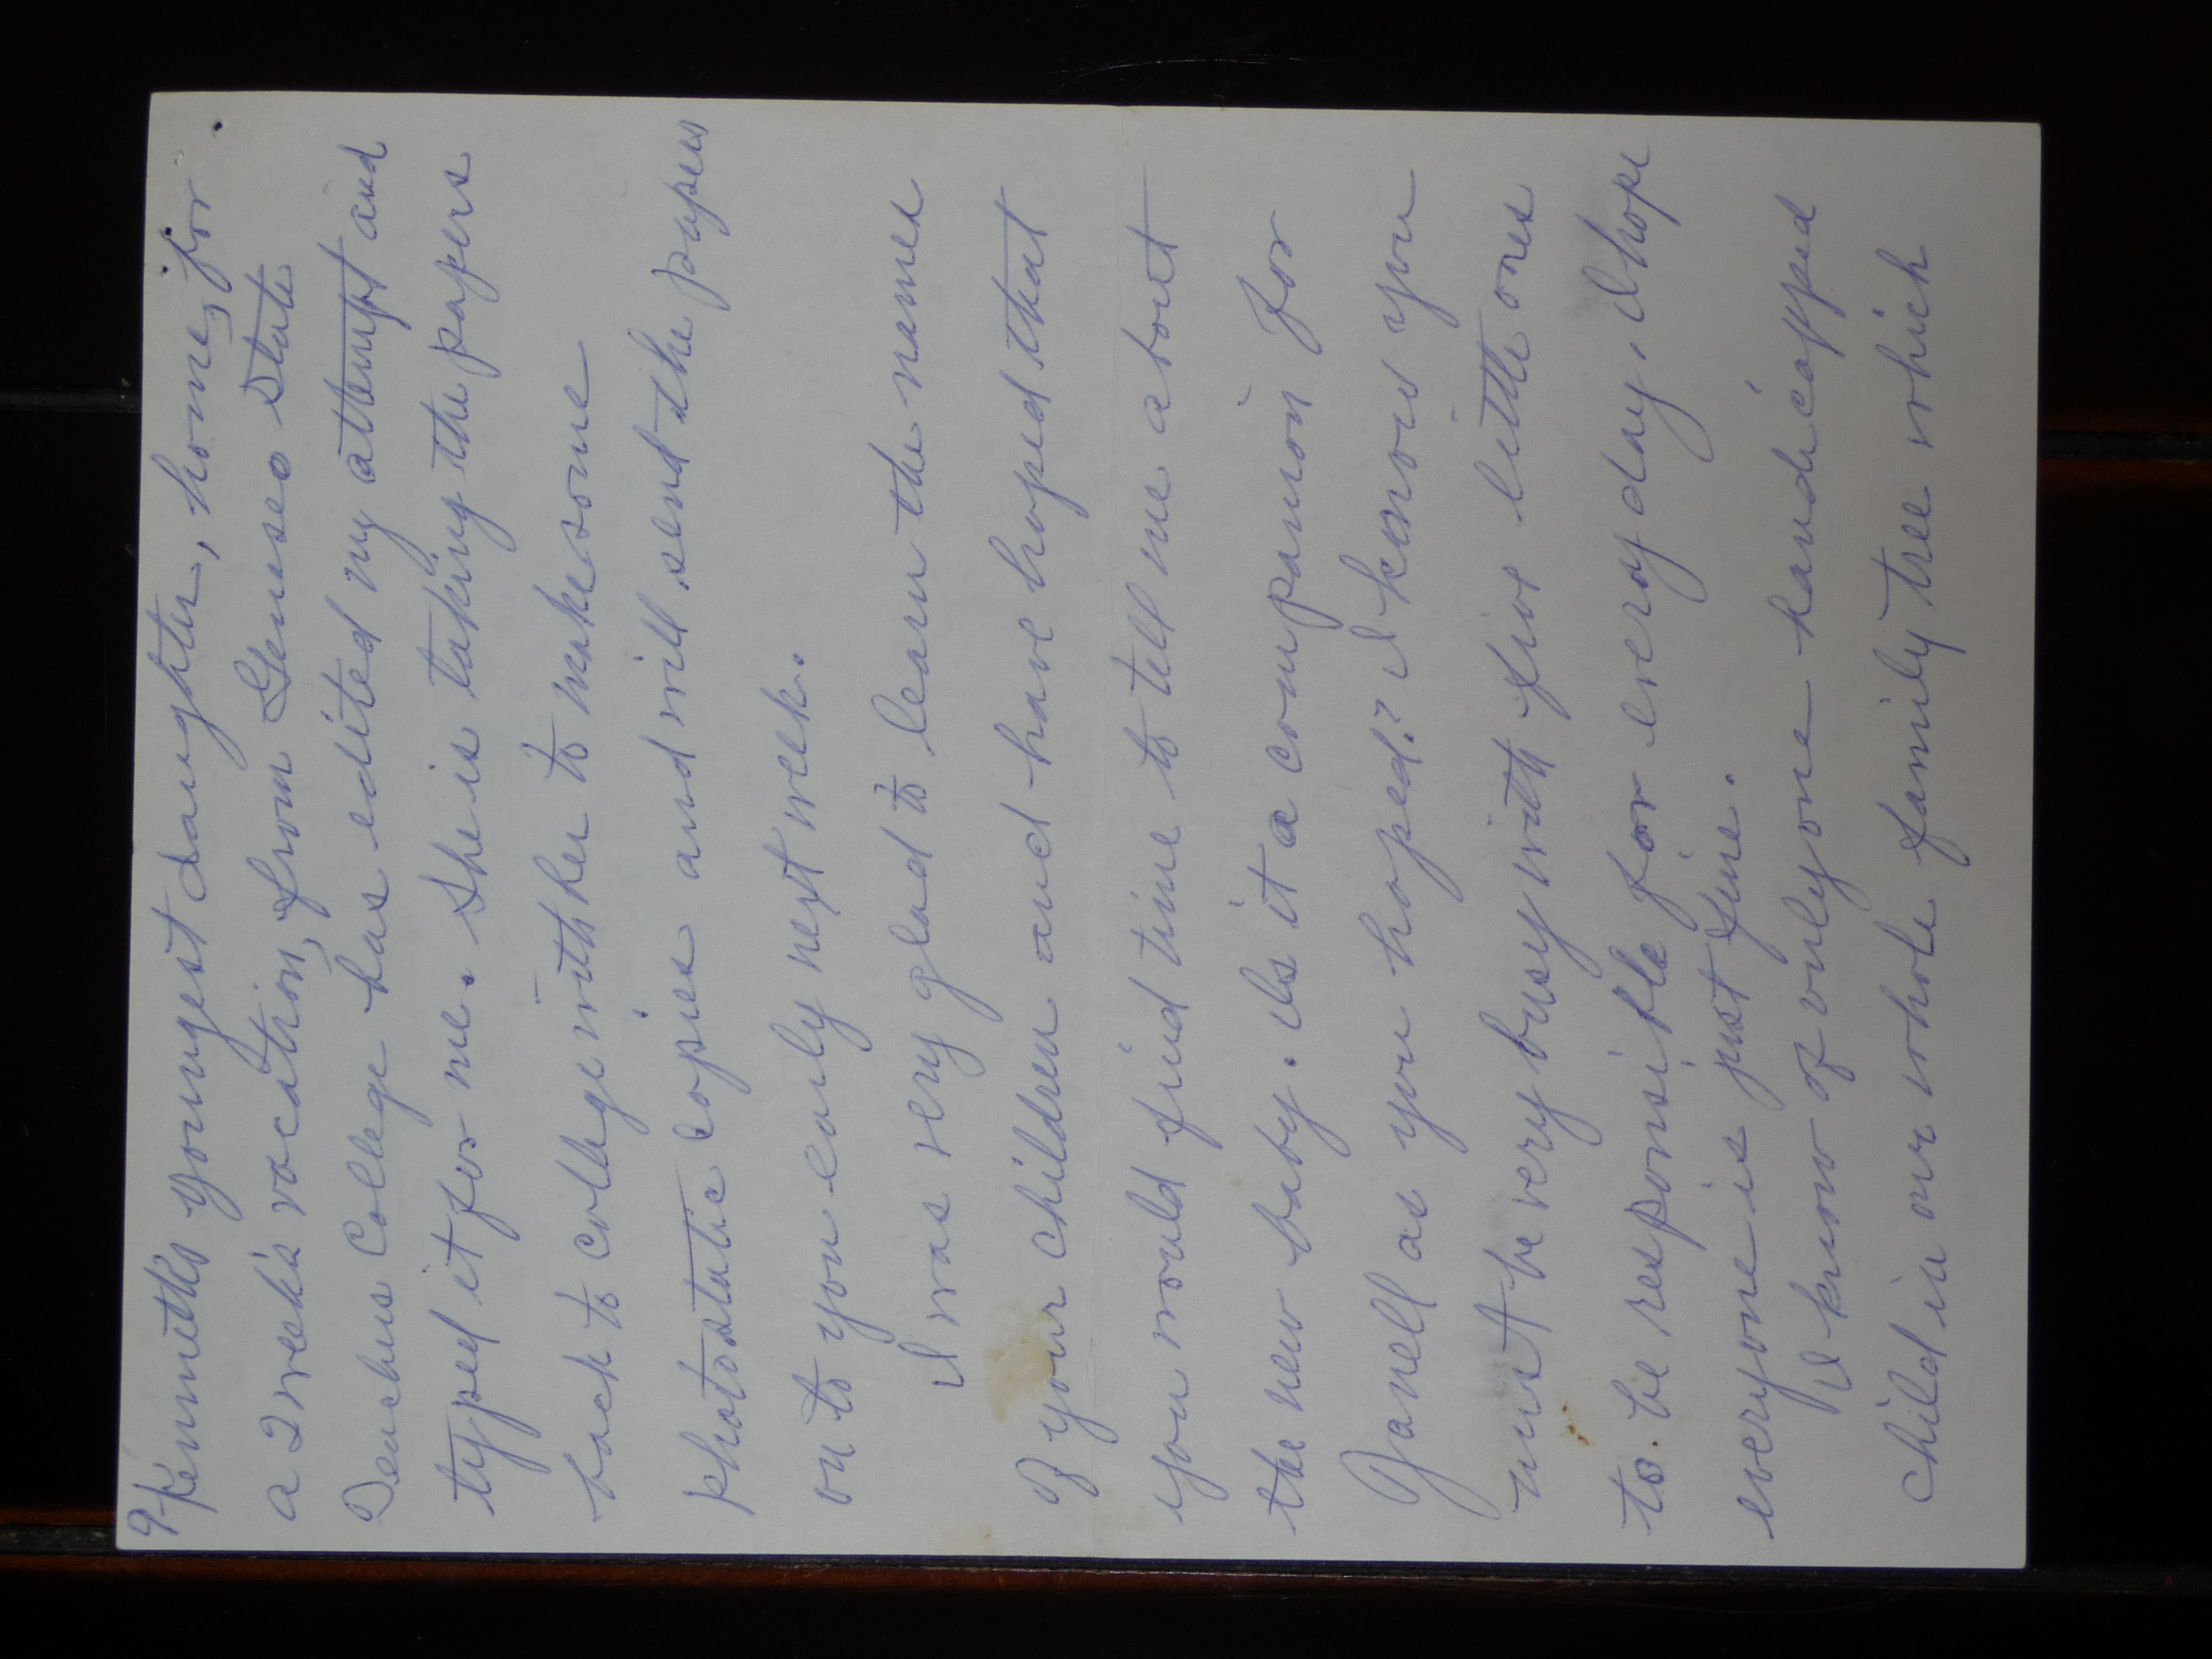 9 Kenneth's youngest daughter, home, for
a 2 week's vacation, from Geneseo State
Teachers College has edited my attempt and
typed it for me. She is taking the papers
back to college with her to make some
photostatic copies and will send the papers
on to you early next week.
I was very glad to learn the names
of your children and have hoped that
you would find time to tell me about
the new baby. Is it a companion for
Janell as you hoped? I know you
must be very busy with five little ones
to be responsible for every day. I hope
everyone is just fine.
I know of only one handicapped
child in our whole family tree which